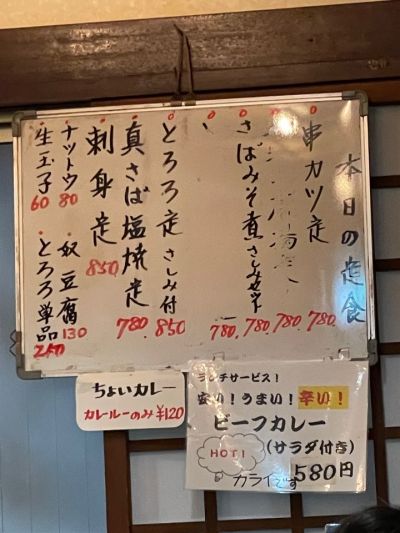 本日の定食
串カツ定 780.
780.
さばみそ煮さしみセット 780.
780.
とろろ定 さしみ付 850
真さば塩焼定 780.
刺身定 850
ナットウ 80 奴豆腐 130
生玉子 60 とろろ単品 250
ちょいカレー
カレールーのみ ¥120
ランチサービス!
安い!うまい!辛い!
ビーフカレー
(サラダ付き)
HOT!
カライです
580円